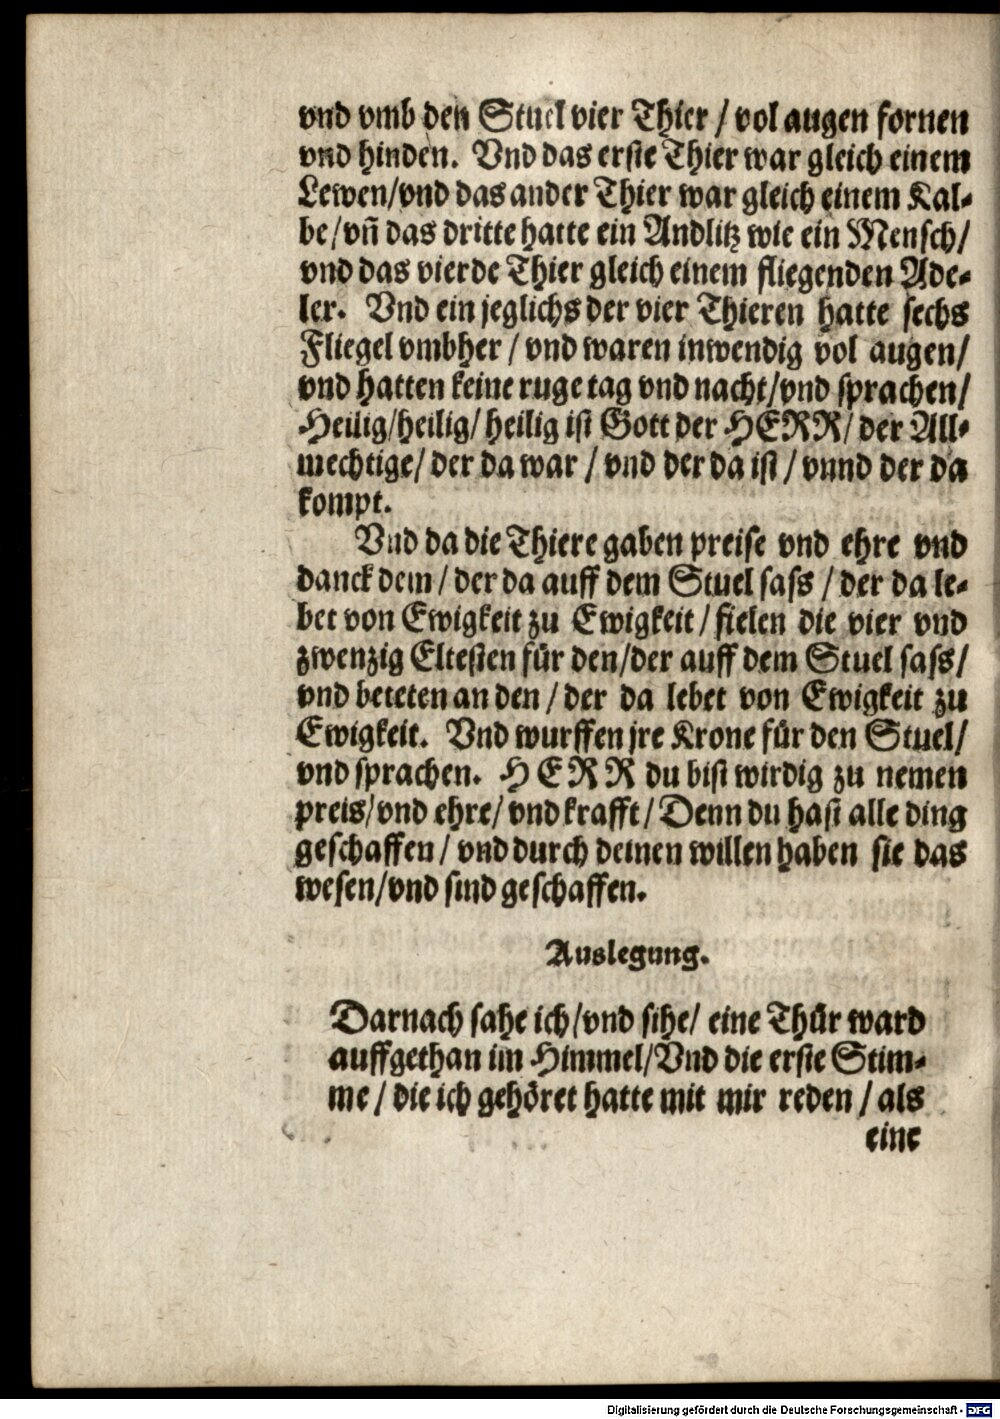 vnd vmb den Stuel vier Thier / vol augen fornen
vnd hinden. Vnd das erste Thier war gleich einem
Lewen/vnd das ander Thier war gleich einem Kal-
be/vñ das dritte hatte ein Andlitz wie ein Mensch/
vnd das vierde Thier gleich einem fliegenden Ade-
ler. Vnd ein jeglichs der vier Thieren hatte sechs
Fliegel vmbher / vnd waren inwendig vol augen/
vnd hatten keine ruge tag vnd nacht/vnd sprachen/
Heilig/heilig/ heilig ist Gott der HERR/ der All-
mechtige/ der da war / vnd der da ist / vnnd der da
kompt.
Vnd da die Thiere gaben preise vnd ehre vnd
danck dem / der da auff dem Stuel sass / der da le-
bet von Ewigkeit zu Ewigkeit / fielen die vier vnd
zwenzig Eltesten für den/der auff dem Stuel sass/
vnd beteten an den / der da lebet von Ewigkeit zu
Ewigkeit. Vnd wurffen jre Krone für den Stuel/
vnd sprachen. HERR du bist wirdig zu nemen
preis/vnd ehre/ vnd krafft/ Denn du hast alle ding
geschaffen / vnd durch deinen willen haben sie das
wesen/vnd sind geschaffen.
Auslegung.
Darnach sahe ich/vnd sihe/ eine Thür ward
auffgethan im Himmel/Vnd die erste Stim-
me / die ich gehöret hatte mit mir reden / als
eine
Digitalisierung gefördert durch die Deutsche Forschungsgemeinschaft - DFG